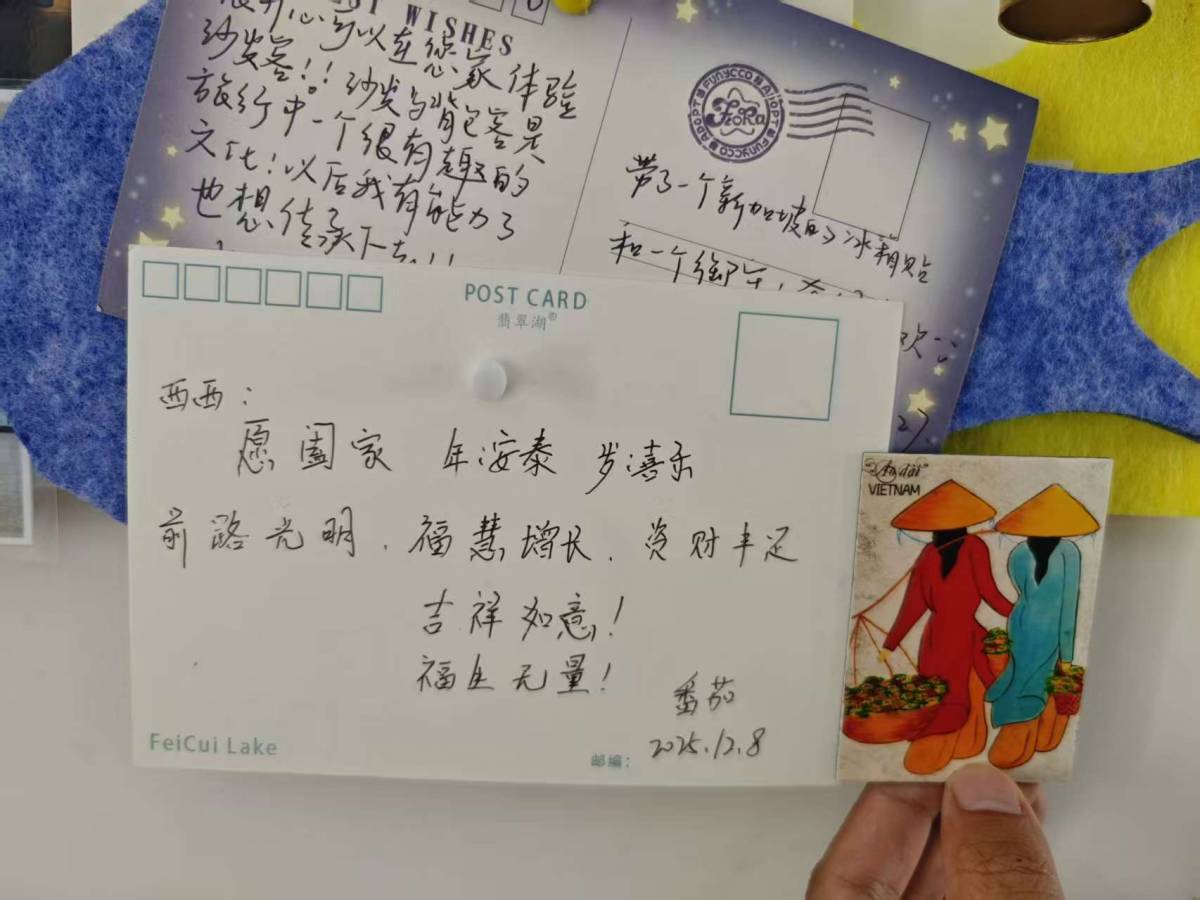 BEST WISHES
很开心可以在您家体验
沙发客!! 沙发与背包客是
旅行中一个很有趣的
文化!以后我有能力了
也想传承下去!!
FUNYCCO ADOPT FUNYCCO ADOPT
Flora
带了一个新加坡的冰箱贴
和一个御守,
欢
27
POST CARD
翡翠湖®
西西:
愿阖家 年年安泰 岁岁喜乐
前路光明.福慧增长.资财丰足
吉祥如意!
福生无量!
番茄
2025.12.8
FeiCui Lake
邮编:
"Ao dài"
VIETNAM